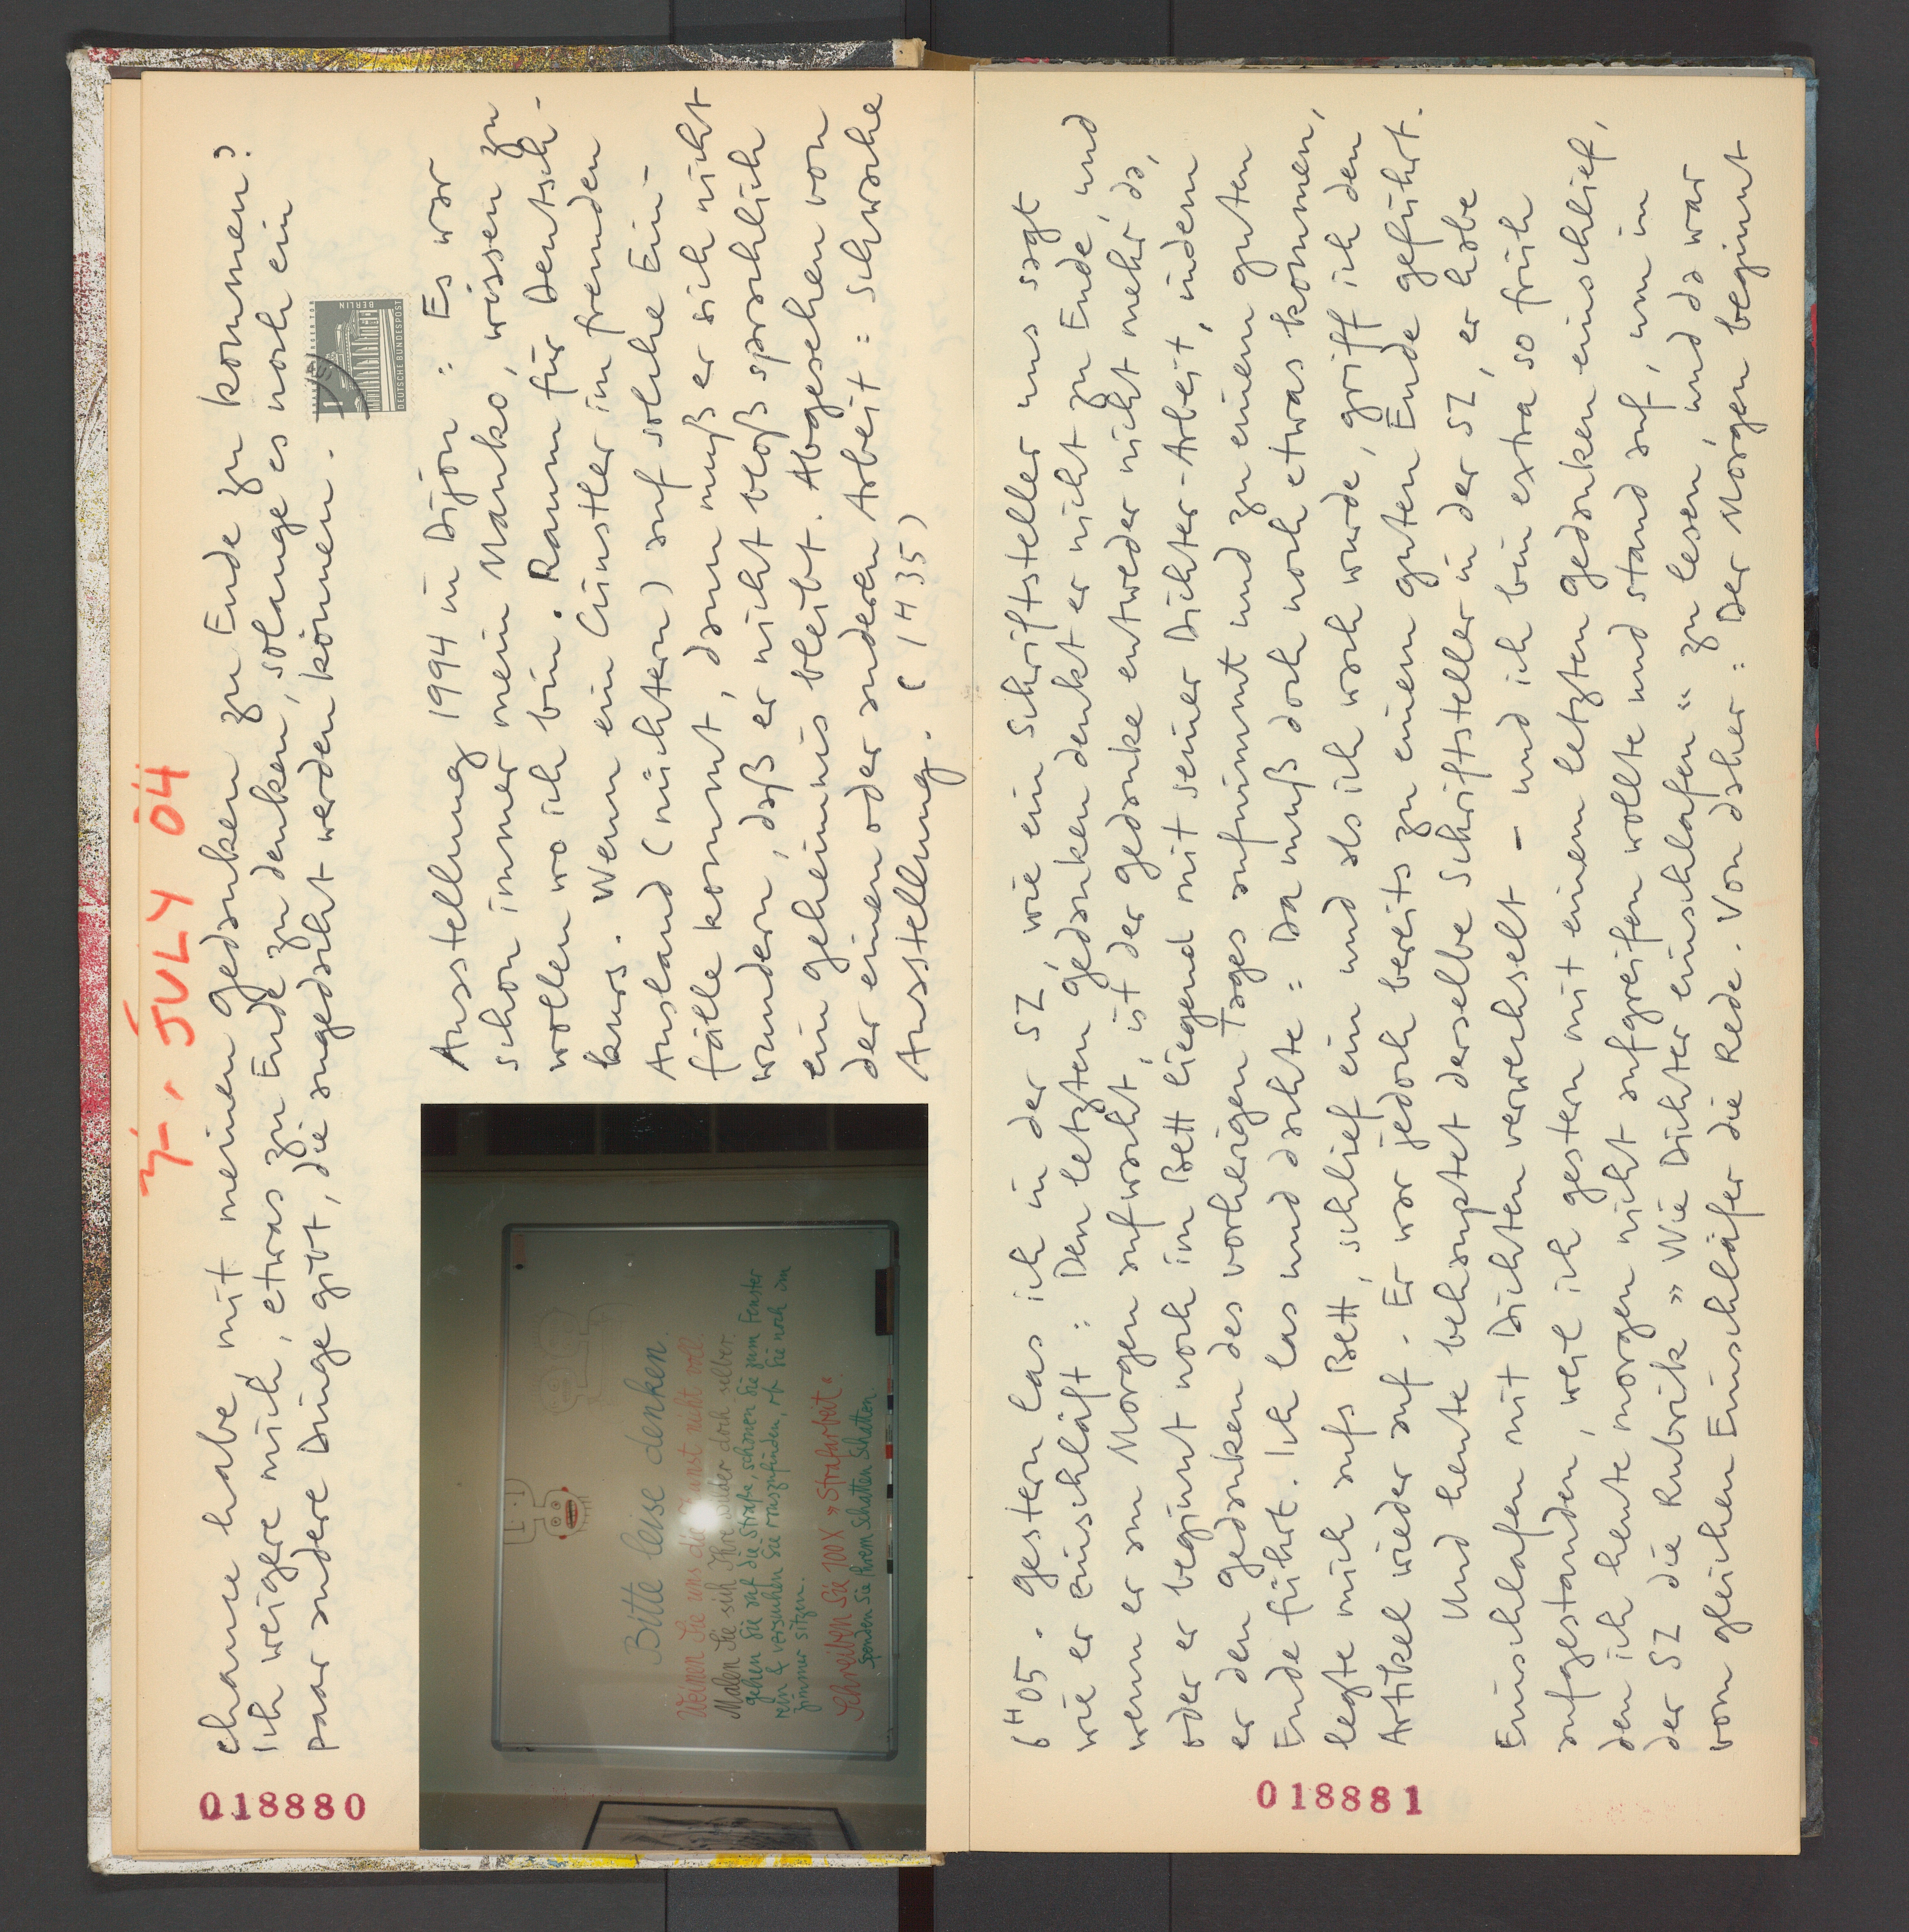 31. JULY 04
chance habe, mit meinen Gedanken zu Ende zu kommen?
Ich weigere mich, etwas zu Ende zu denken, solange es noch ein
paar andere Dinge gibt, die angedacht werden können.
BERLIN
DEUTSCHE BUNDESPOST
Ausstellung 1994 in Dijon : Es war
schon immer mein Manko, wissen zu
wollen wo ich bin. Raum für Deutsch-
kurs. Wenn ein Künstler im fremden
Ausland (nüchtern) auf solche Ein-
fälle kommt, dann muß er sich nicht
wundern, daß er nicht bloß sprachlich
ein Geheimnis bleibt. Abgesehen von
der einen oder anderen Arbeit : schwache
Ausstellung. (1435)
Bitte leise denken.
Weinen Sie uns die Kunst nicht voll.
Malen Sie sich Ihre Bilder doch selber.
gehen Sie auf die Straße, schauen Sie zum Fenster
rein & versuchen Sie rauszufinden, ob Sie noch im
Zimmer sitzen.
Schreiben Sie 100 X »Strafarbeit«.
Spenden Sie Ihrem Schatten Schatten
018880
6H05. Gestern las ich in der SZ, wie ein Schriftsteller uns sagt
wie er einschläft : Den letzten Gedanken denkt er nicht zu Ende, und
wenn er am Morgen aufwacht, ist der Gedanke entweder nicht mehr da,
oder er beginnt noch im Bett liegend mit seiner Dichter-Arbeit, indem
er den Gedanken des vorherigen Tages aufnimmt und zu einem guten
Ende führt. Ich las und dachte : Da muß doch noch etwas kommen,
legte mich aufs Bett, schlief ein und als ich wach wurde, griff ich den
Artikel wieder auf. Er war jedoch bereits zu einem guten Ende geführt.
Und heute behauptet derselbe Schriftsteller in der SZ, er habe
Einschlafen mit Dichten verwechselt – und ich bin extra so früh
aufgestanden, weil ich gestern mit einem letzten Gedanken einschlief,
den ich heute morgen nicht aufgreifen wollte und stand auf, um in
der SZ die Rubrik »Wie Dichter einschlafen« zu lesen, und da war
vom gleichen Einschläfer die Rede. Von daher : Der Morgen beginnt
018881